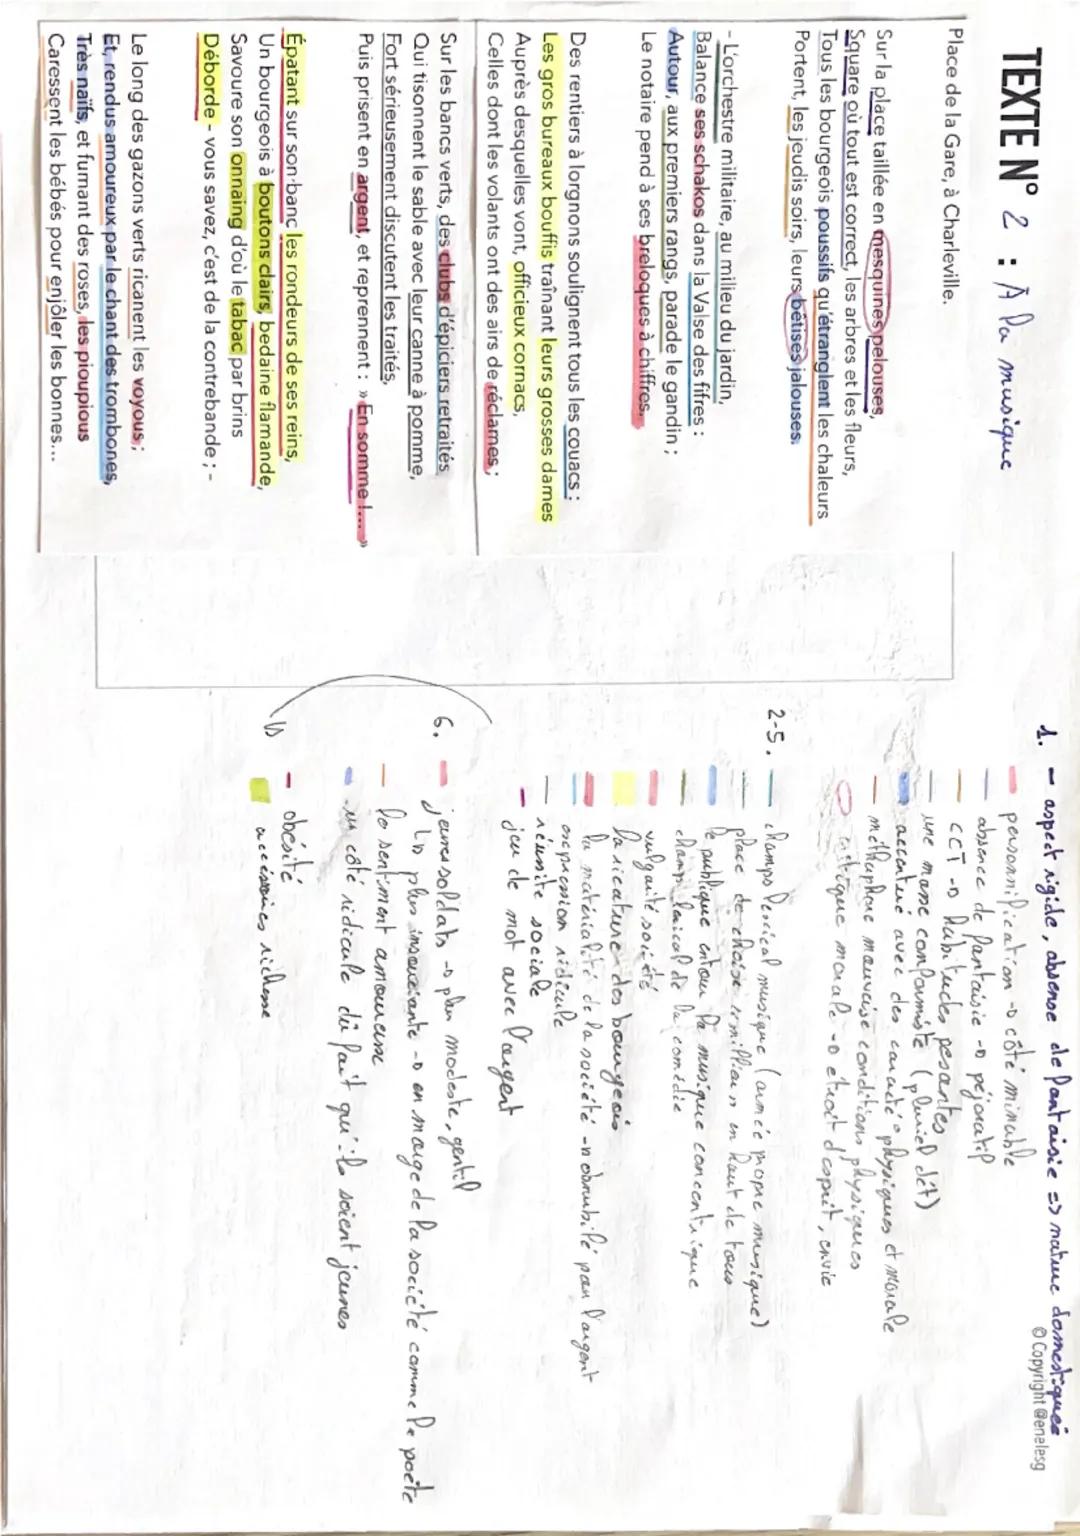 TEXTE N° 2 : A la musique
Place de la Gare, à Charleville.
Sur la place taillée en mesquines pelouses,
Square où tout est correct, les arbres et les fleurs,
Tous les bourgeois poussifs qu'étranglent les chaleurs
Portent, les jeudis soirs, leurs bêtises jalouses.
- L'orchestre militaire, au milieu du jardin,
Balance ses schakos dans la Valse des fifres :
Autour, aux premiers rangs, parade le gandin ;
Le notaire pend à ses breloques à chiffres.
Des rentiers à lorgnons soulignent tous les couacs :
Les gros bureaux bouffis traînant leurs grosses dames
Auprès desquelles vont, officieux cornacs,
Celles dont les volants ont des airs de réclames ;
Sur les bancs verts, des clubs d'épiciers retraités
Qui tisonnent le sable avec leur canne à pomme,
Fort sérieusement discutent les traités,
Puis prisent en argent, et reprennent : » En somme !... »
Épatant sur son banc les rondeurs de ses reins,
Un bourgeois à boutons clairs, bedaine flamande,
Savoure son onnaing d'où le tabac par brins
Déborde - vous savez, c'est de la contrebande ; -
Le long des gazons verts ricanent les voyous ;
Et, rendus amoureux par le chant des trombones,
Très naïfs, et fumant des roses, les pioupious
Caressent les bébés pour enjôler les bonnes...
1. - aspect rigide, absense de fantaisie => nature domestiquée
© Copyright @enelesg
personnification → côté minable
absence de fantaisie → péjoratif
CCT → habitudes pesantes
une masse conformiste (pluriel dét)
accentué avec des caracté° physiques et morale
méthaphore mauvaise conditions physiques
critique morale → étroit d'esprit, envie
2-5. champs lexical musique (armée propre musique)
place de choise en haut de tous
le publique entour la musique concentrique
champ lexical de la comédie
vulgarité société
la icature des bourgeois
la matérialité de la société → obnubilé par l'argent
expression ridicule
réussite sociale
jeu de mot avec l'argent
6. jeunes soldats → plus modeste, gentil
↳ plus insouciante → en marge de la société comme le poète
le sentiment amoureuse
un côté ridicule dû fait qu'ils soient jeunes
obésité
accessoires richesse